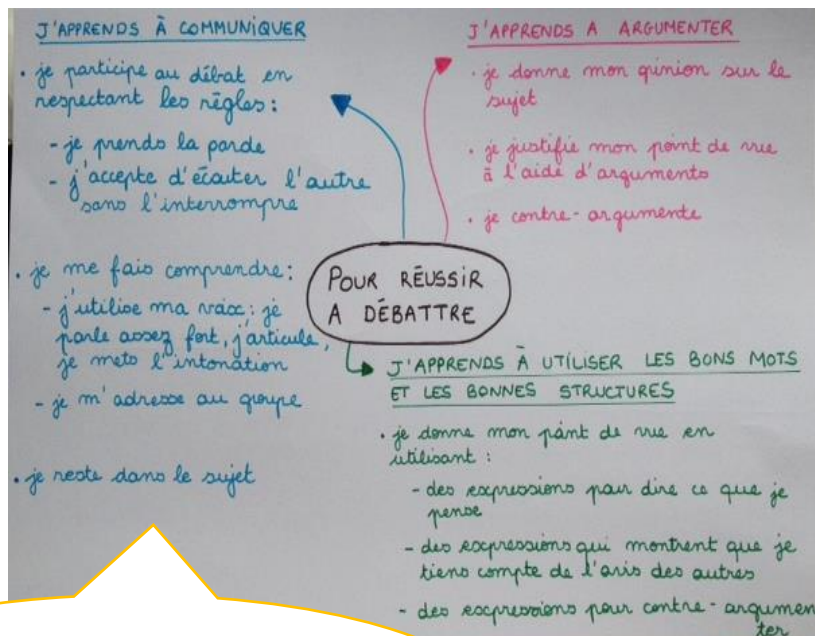 J'APPRENDS À COMMUNIQUER
• je participe au débat en
respectant les règles :
- je prends la parole
- j'accepte d'écouter l'autre
sans l'interrompre
• je me fais comprendre :
- j'utilise ma voix : je
parle assez fort, j'articule,
je mets l'intonation
- je m'adresse au groupe
• je reste dans le sujet
J'APPRENDS A ARGUMENTER
• je donne mon opinion sur le
sujet
• je justifie mon point de vue
à l'aide d'arguments
• je contre-argumente
POUR RÉUSSIR
A DÉBATTRE
J'APPRENDS À UTILISER LES BONS MOTS
ET LES BONNES STRUCTURES
• je donne mon point de vue en
utilisant :
- des expressions pour dire ce que je
pense
- des expressions qui montrent que je
tiens compte de l'avis des autres
- des expressions pour contre-argumen
ter